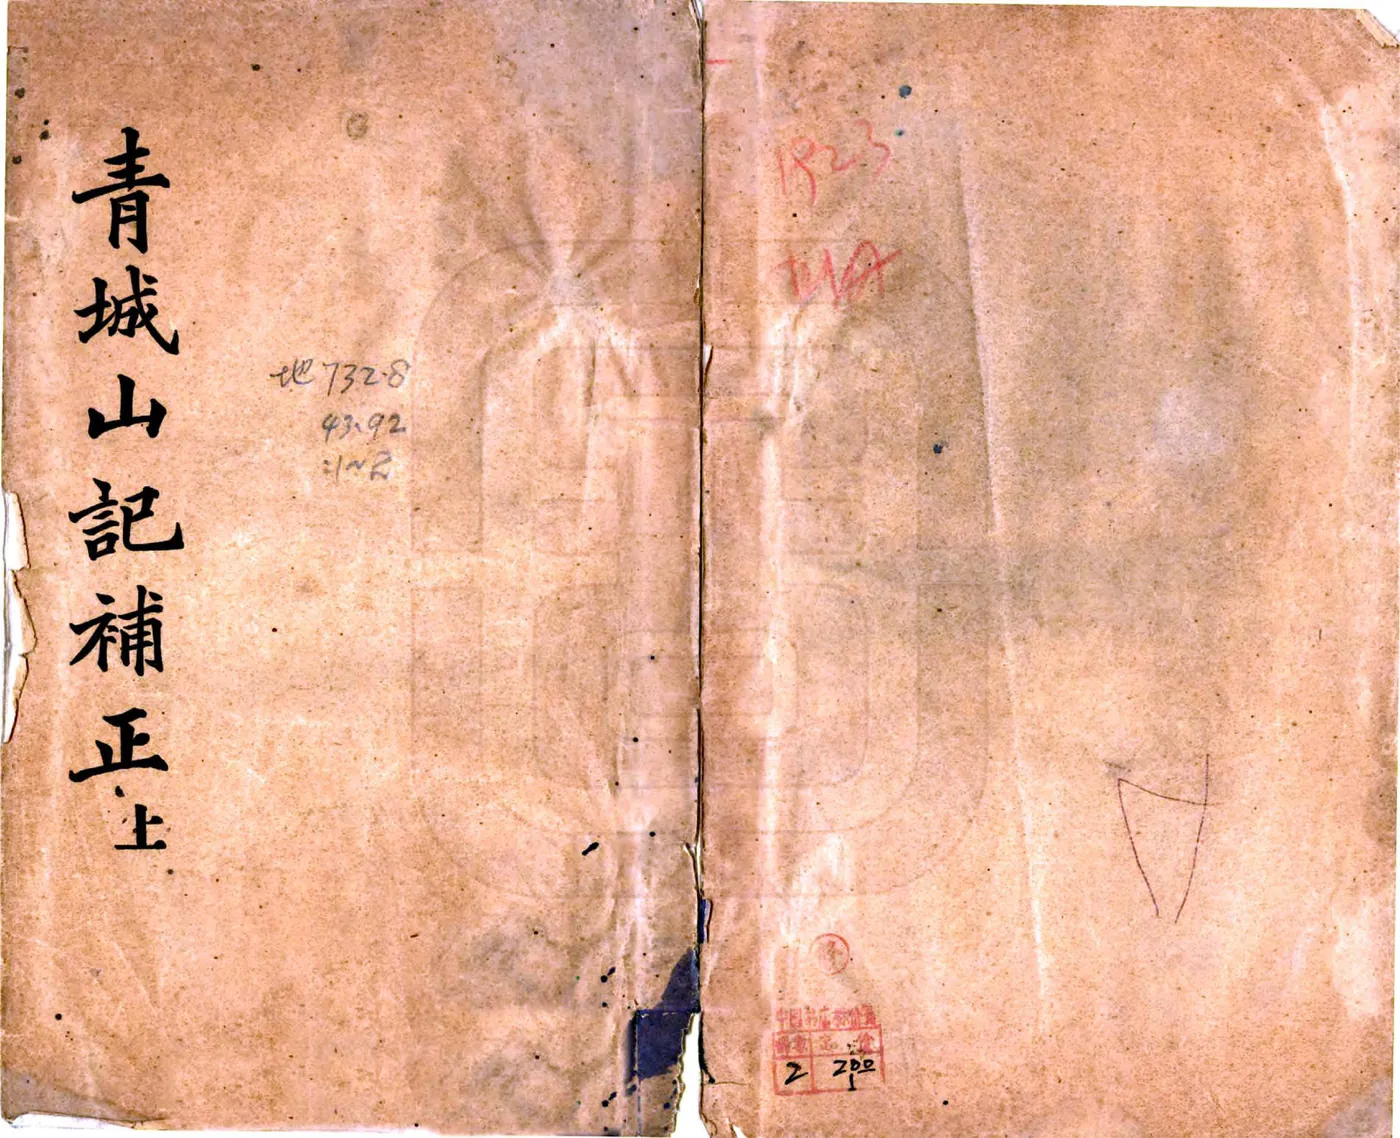 青城山記補正上
地732.8
43.92
:1~2
1923
中国书店
2 200
1